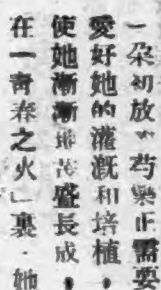 一朶初放的芍藥正需要
愛好她的灌溉和培植，
使她漸漸地茂盛長成，
在「青春之火」裏．她